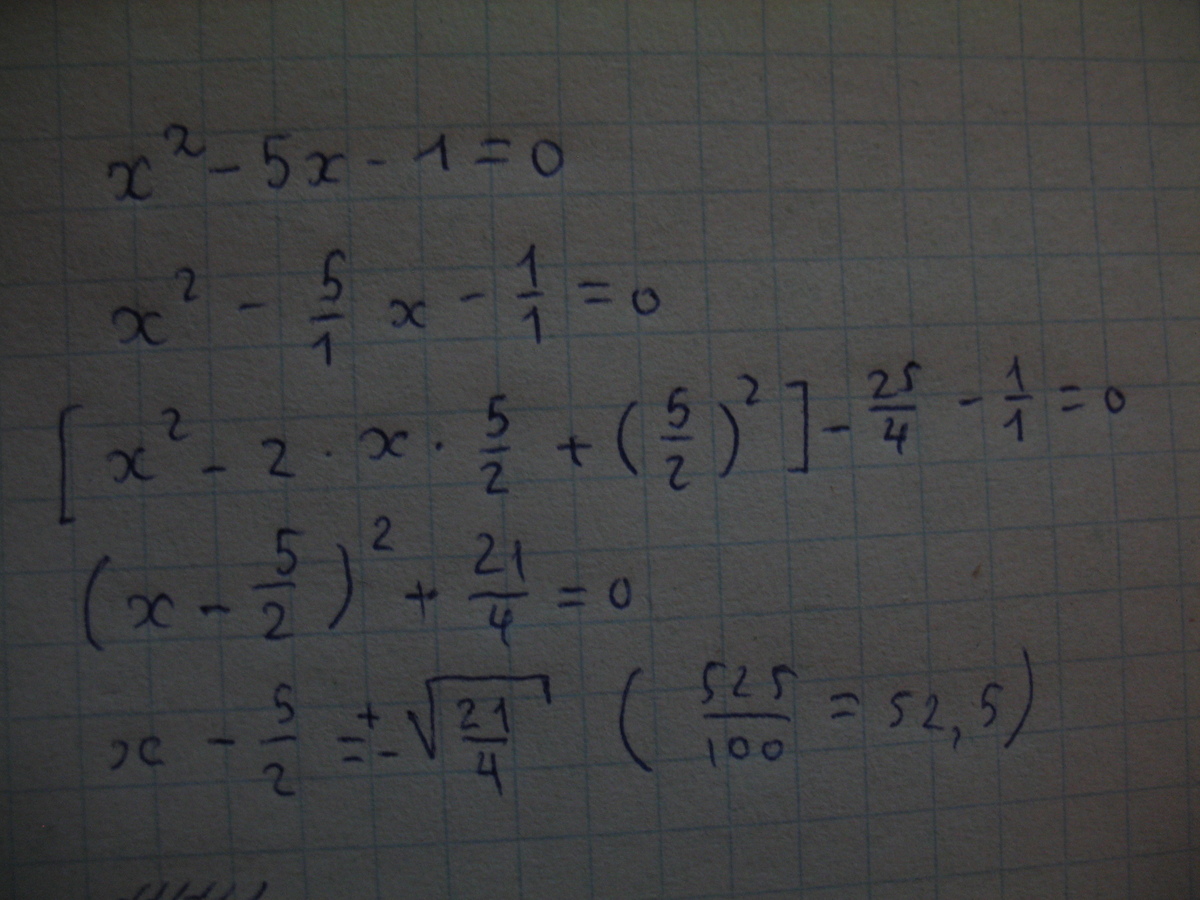 x² - 5x - 1 = 0
x² - 5/1 x - 1/1 = 0
[x² - 2 · x · 5/2 + (5/2)²] - 25/4 - 1/1 = 0
(x - 5/2)² + 21/4 = 0
x - 5/2 = ±√(21/4) (525/100 = 52,5)